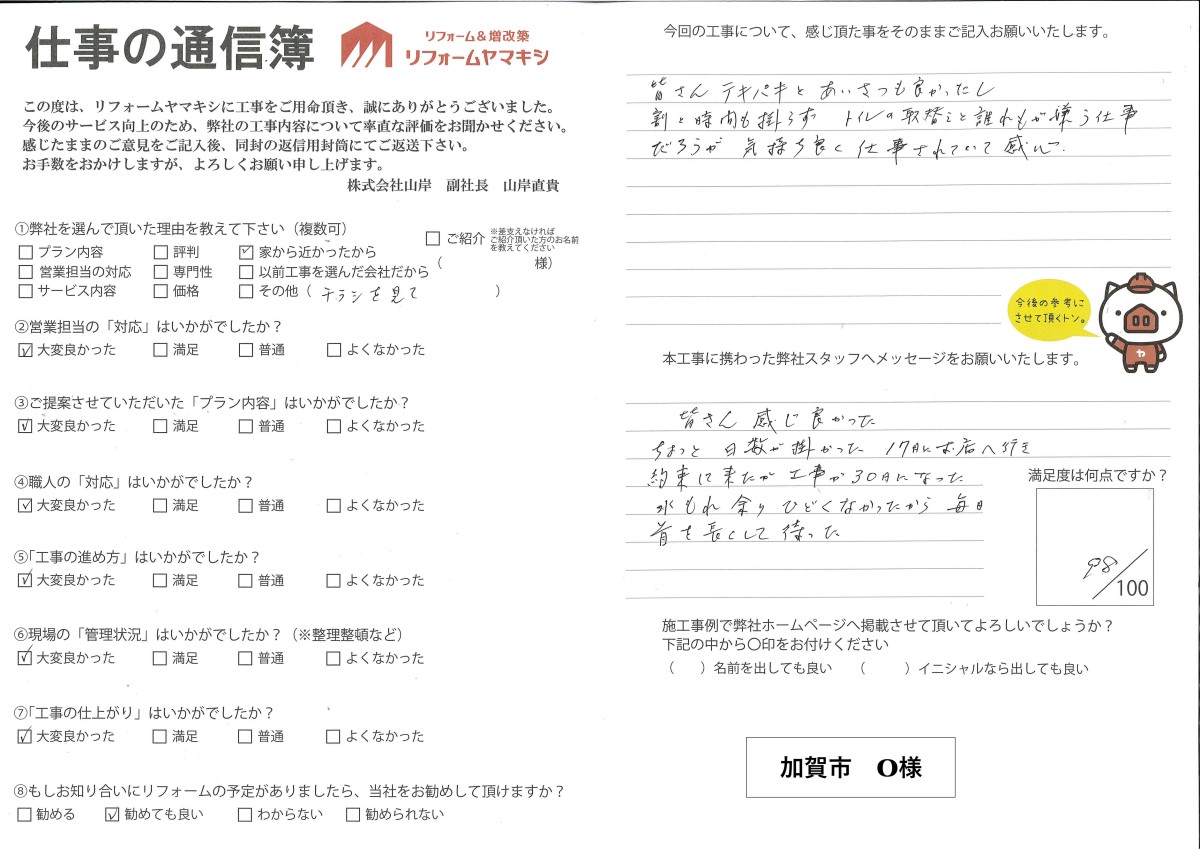 仕事の通信簿
リフォーム&増改築
リフォームヤマキシ
この度は、リフォームヤマキシに工事をご用命頂き、誠にありがとうございました。
今後のサービス向上のため、弊社の工事内容について率直な評価をお聞かせください。
感じたままのご意見をご記入後、同封の返信用封筒にてご返送下さい。
お手数をおかけしますが、よろしくお願い申し上げます。
株式会社山岸 副社長 山岸直貴
①弊社を選んで頂いた理由を教えて下さい（複数可）
□ プラン内容 □ 評判 ☑ 家から近かったから □ ご紹介 ※差支えなければご紹介頂いた方のお名前を教えてください
□ 営業担当の対応 □ 専門性 □ 以前工事を選んだ会社だから （ 様）
□ サービス内容 □ 価格 □ その他（ チラシを見て ）
②営業担当の「対応」はいかがでしたか？
☑ 大変良かった □ 満足 □ 普通 □ よくなかった
③ご提案させていただいた「プラン内容」はいかがでしたか？
☑ 大変良かった □ 満足 □ 普通 □ よくなかった
④職人の「対応」はいかがでしたか？
☑ 大変良かった □ 満足 □ 普通 □ よくなかった
⑤「工事の進め方」はいかがでしたか？
☑ 大変良かった □ 満足 □ 普通 □ よくなかった
⑥現場の「管理状況」はいかがでしたか？（※整理整頓など）
☑ 大変良かった □ 満足 □ 普通 □ よくなかった
⑦「工事の仕上がり」はいかがでしたか？
☑ 大変良かった □ 満足 □ 普通 □ よくなかった
⑧もしお知り合いにリフォームの予定がありましたら、当社をお勧めして頂けますか？
□ 勧める ☑ 勧めても良い □ わからない □ 勧められない
今回の工事について、感じ頂た事をそのままご記入お願いいたします。
皆さん テキパキと あいさつも良かったし
割と時間も掛らず トイレの取替えと誰れもが嫌う仕事
だろうが 気持ち良く 仕事されていて 感心
今後の参考に
させて頂くトン。
ヤ
本工事に携わった弊社スタッフへメッセージをお願いいたします。
皆さん 感じ良かった
ちょっと 日数が掛かった 17日にお店へ行き
約束に来たが 工事が30日になった
水もれ 余り ひどくなかったから 毎日
首を長くして 待った
満足度は何点ですか？
98/100
施工事例で弊社ホームページへ掲載させて頂いてよろしいでしょうか？
下記の中から〇印をお付けください
（ ）名前を出しても良い （ ）イニシャルなら出しても良い
加賀市 O様